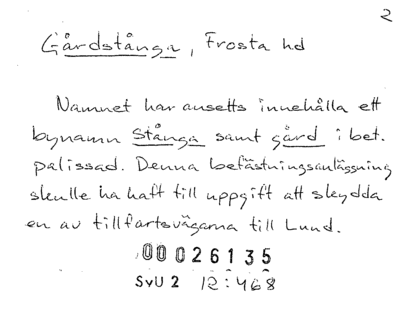 2
Gårdstånga, Frosta hd
Namnet har ansetts innehålla ett
bynamn Stånga samt gård i bet.
palissad. Denna befästningsanläggning
skulle ha haft till uppgift att skydda
en av tillfartsvägarna till Lund.
00026135
SvU 2 12:468